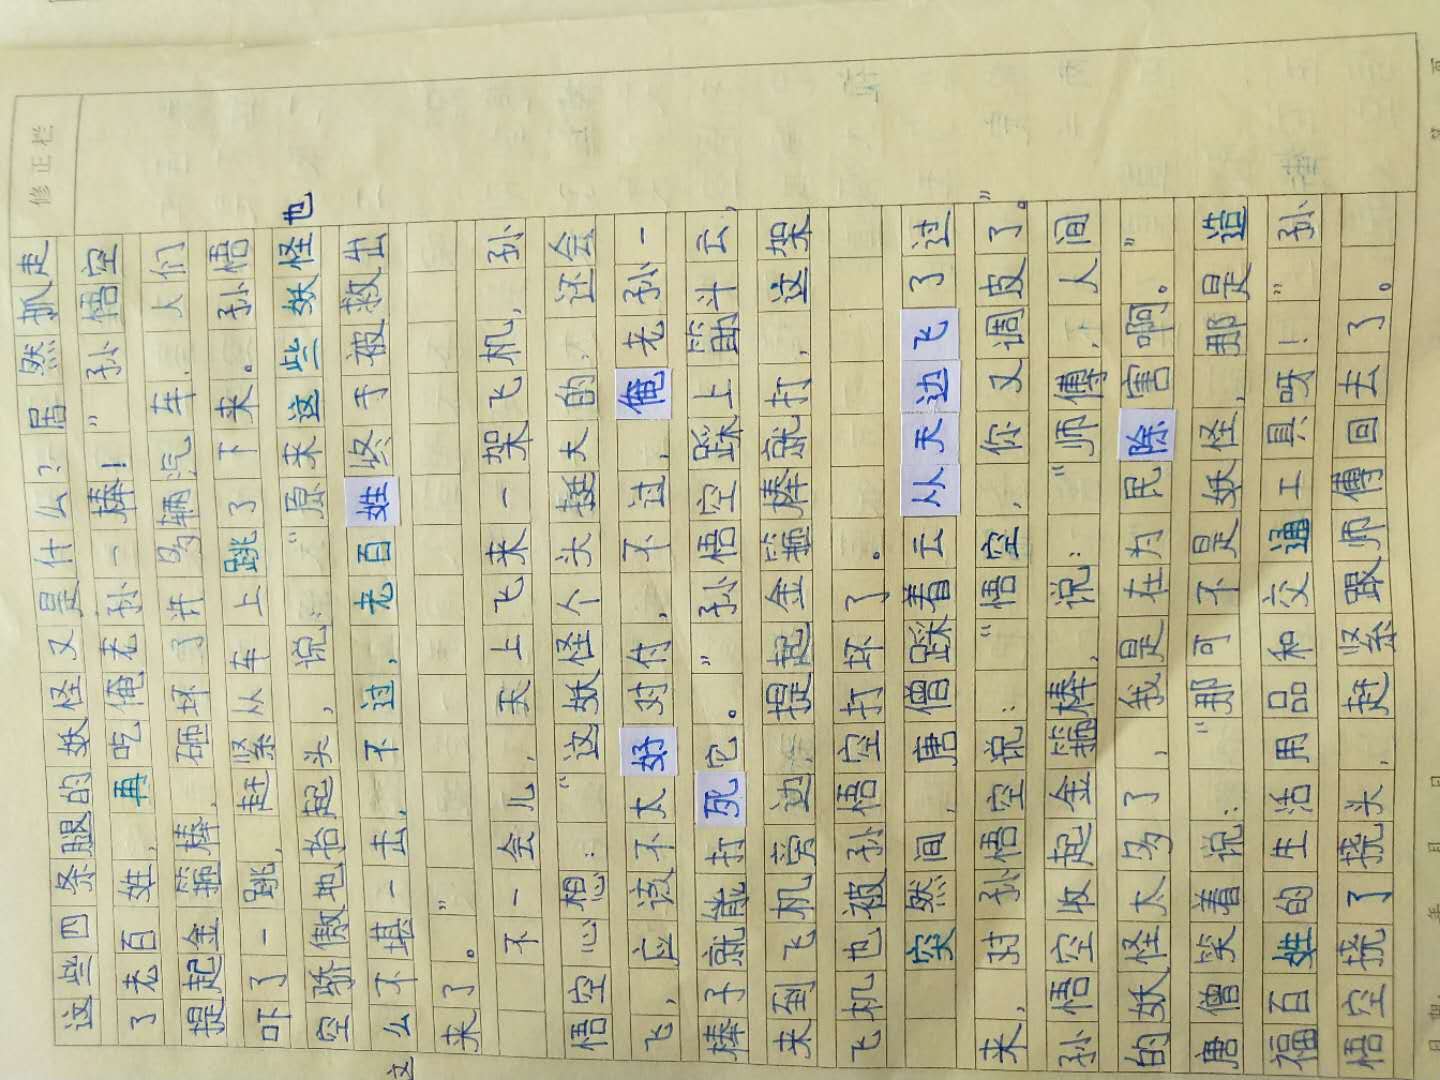 修正栏
这些四条腿的妖怪又是什么？居然抓走
了老百姓，再吃俺老孙一棒！”孙悟空
提起金箍棒，砸坏了许多辆汽车，人们
吓了一跳，赶紧从车上跳了下来。孙悟
空骄傲地抬起头，说：“原来这些妖怪也
么不堪一击，不过，老百姓终于被救出
来了。”
不一会儿，天上飞来一架飞机，孙
悟空心想：“这妖怪个头挺大的，还会
飞，应该不太好对付，不过，俺老孙一
棒子就能打死它。”孙悟空踩上筋斗云，
来到飞机旁边，提起金箍棒就打，这架
飞机也被孙悟空打坏了。
突然间，唐僧踩着云从天边飞了过
来，对孙悟空说：“悟空，你又调皮了。”
孙悟空收起金箍棒，说：“师傅，人间
的妖怪太多了，我是在为民除害啊。”
唐僧笑着说：“那可不是妖怪，那是造
福百姓的生活用品和交通工具呀！”孙
悟空挠了挠头，赶紧跟师傅回去了。